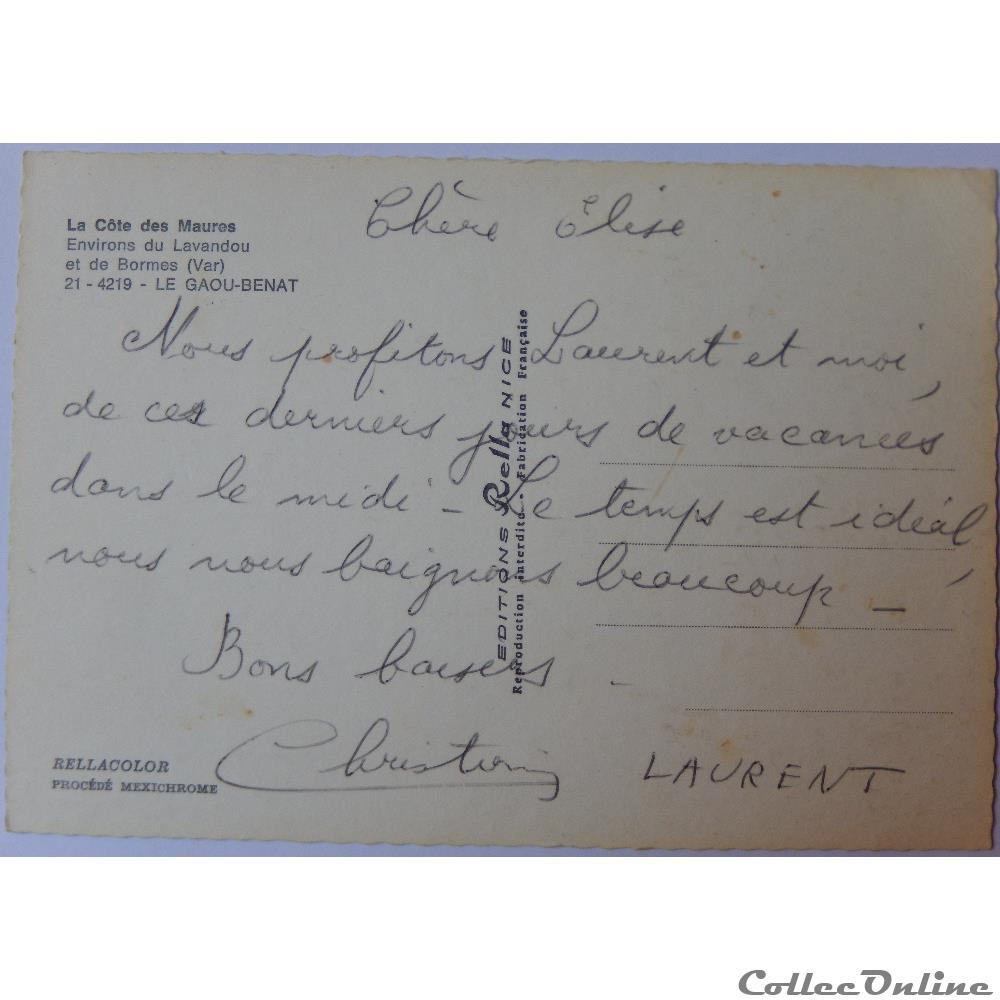 La Côte des Maures
Environs du Lavandou
et de Bormes (Var)
21 - 4219 - LE GAOU-BENAT
Chère Elise
Nous profitons Laurent et moi,
de ces derniers jours de vacances
dans le midi - Le temps est idéal,
nous nous baignons beaucoup -
Bons baisers -
LAURENT
EDITIONS Rella NICE
Reproduction interdite - Fabrication Française
RELLACOLOR
PROCÉDÉ MEXICHROME
CollecOnline